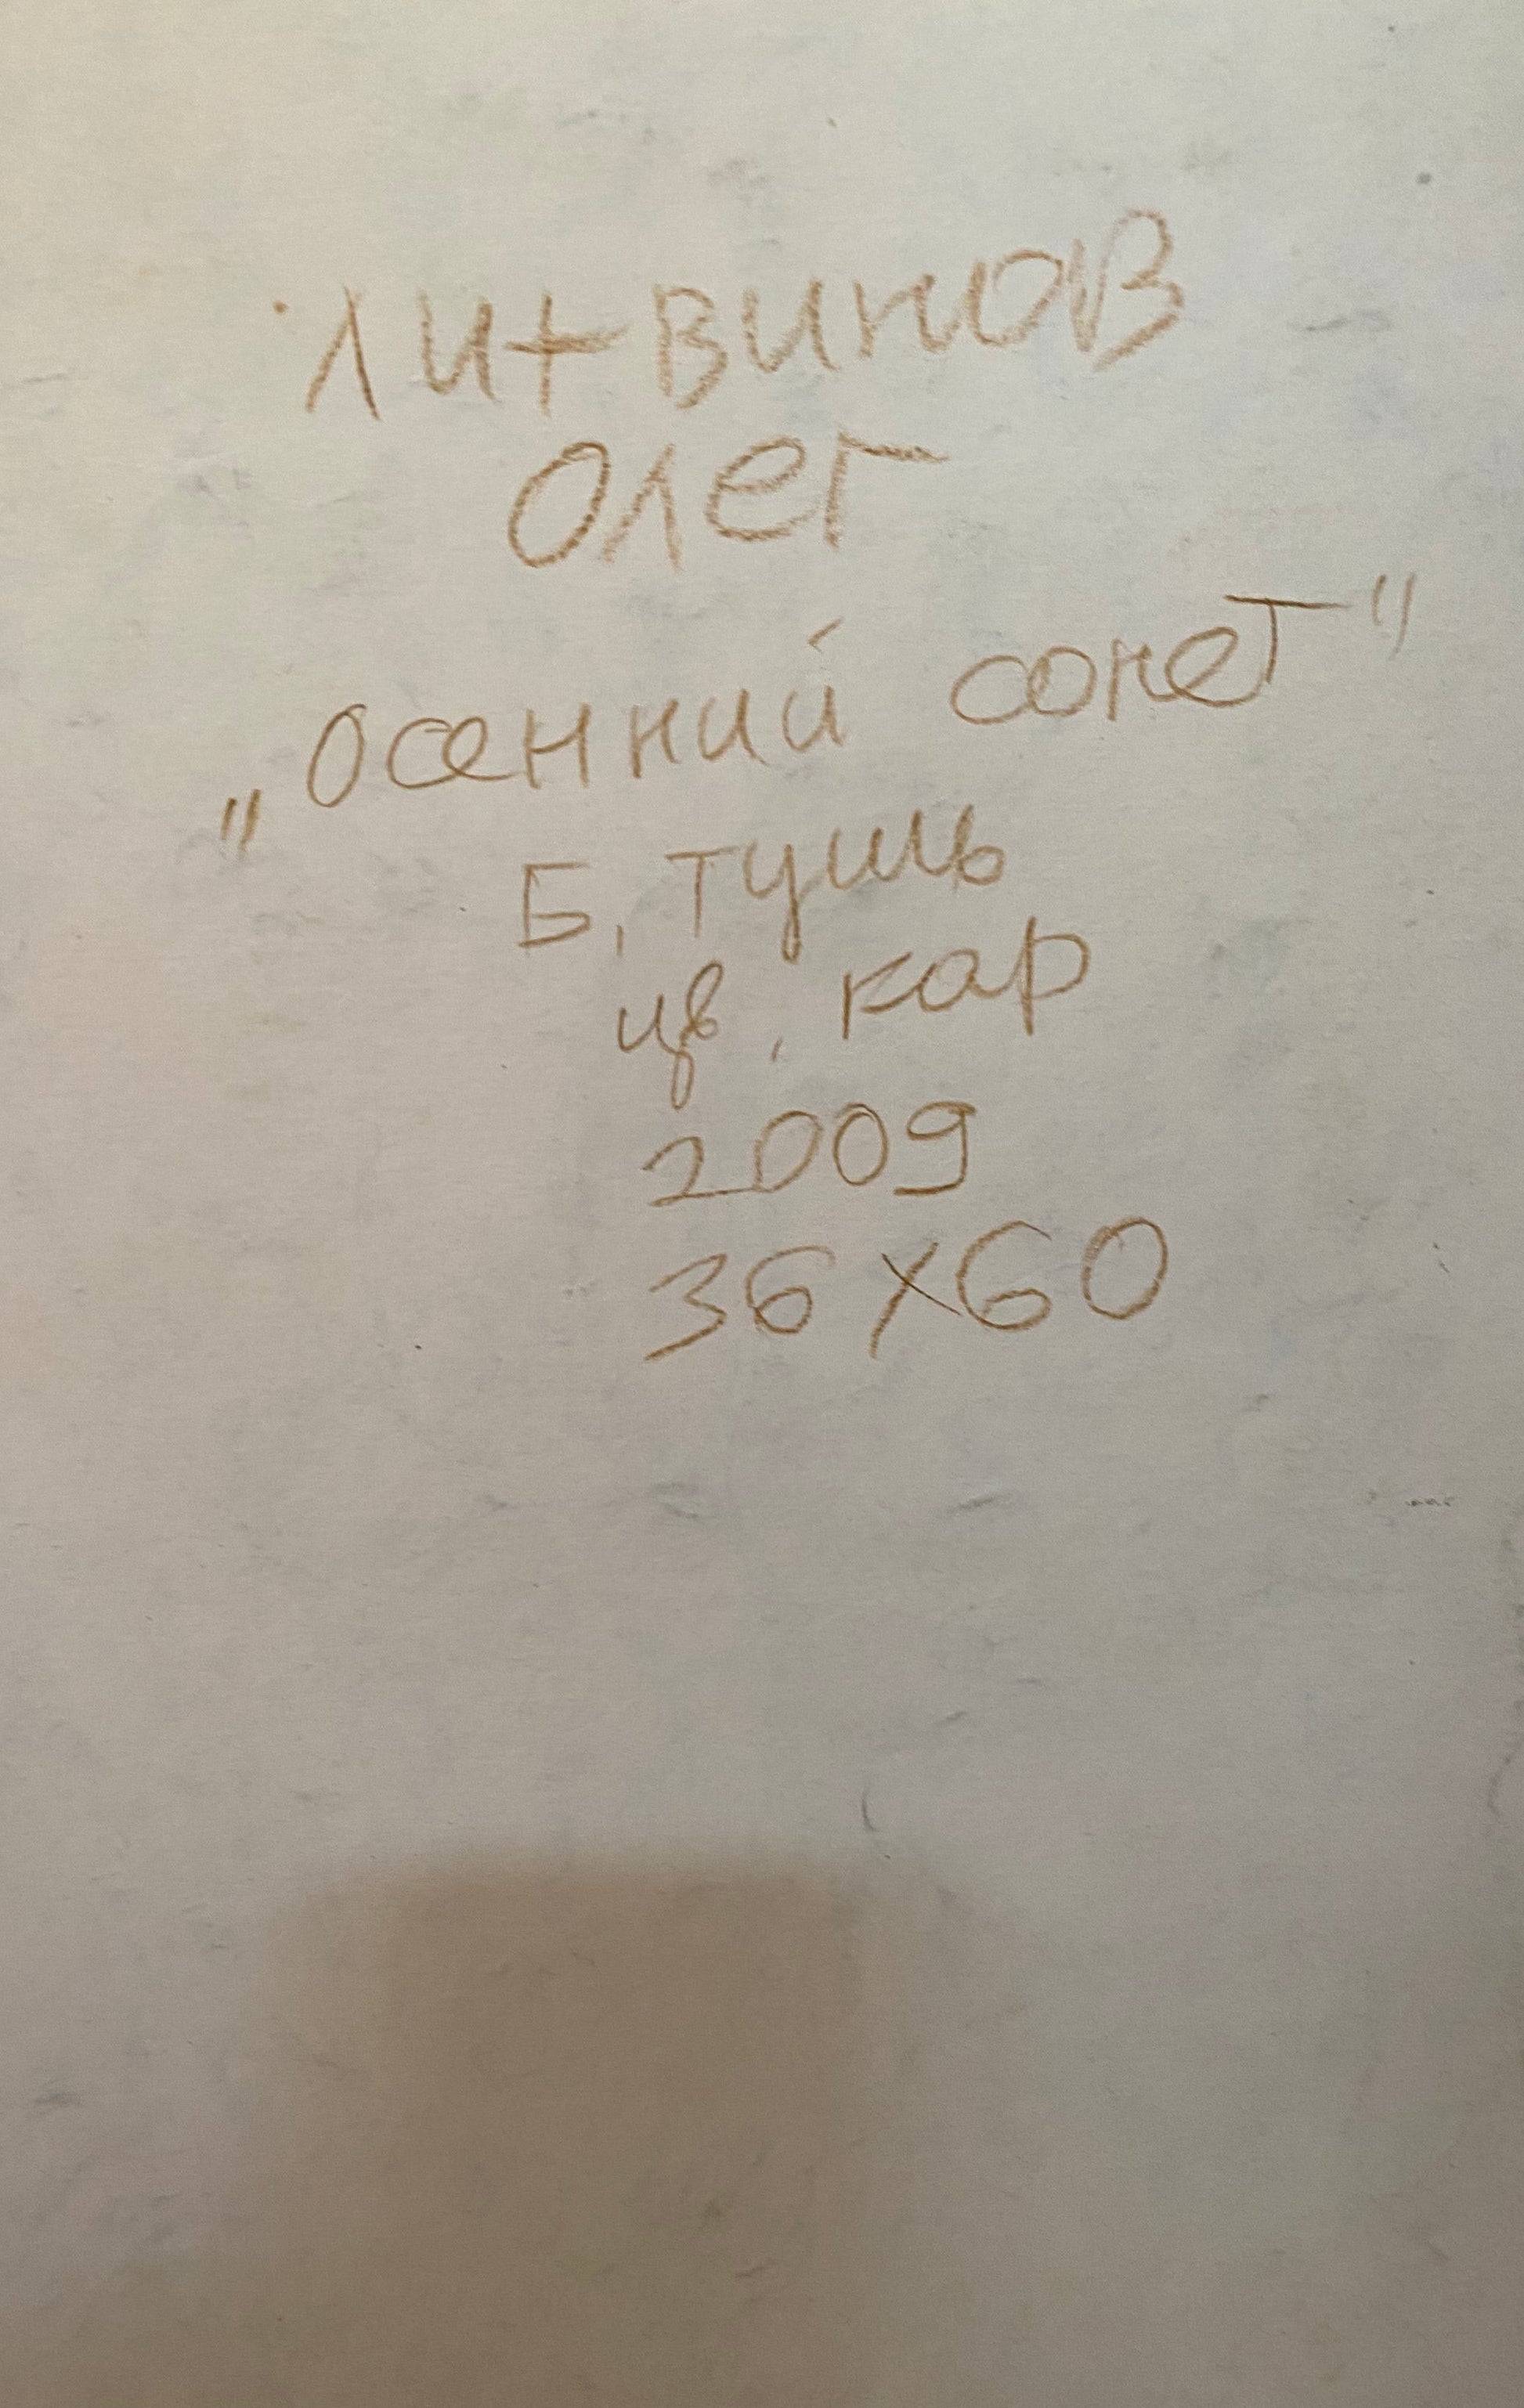 Литвинов
Олег
„Осенний сонет"
Б, тушь
цв, кар
2009
36х60